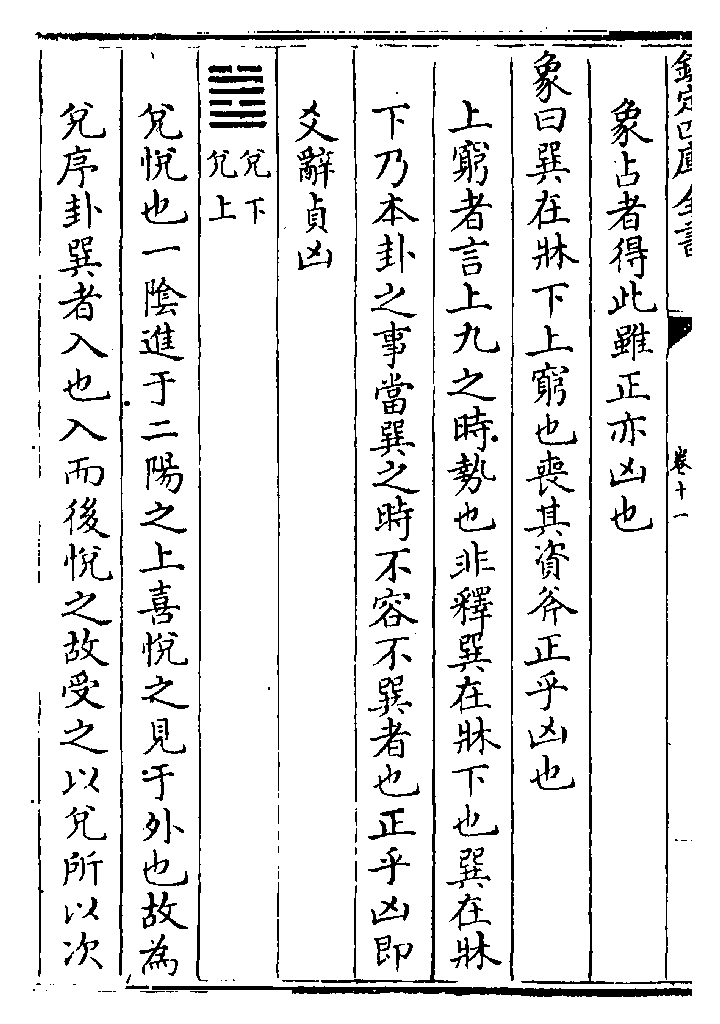 欽定四庫全書
卷十一
象占者得此雖正亦凶也
象曰巽在牀下上窮也喪其資斧正乎凶也
上窮者言上九之時勢也非釋巽在牀下也巽在牀
下乃本卦之事當巽之時不容不巽者也正乎凶即
爻辭貞凶
䷹
兌下
兌上
兌悅也一陰進于二陽之上喜悅之見于外也故為
兌序卦巽者入也入而後悅之故受之以兌所以次